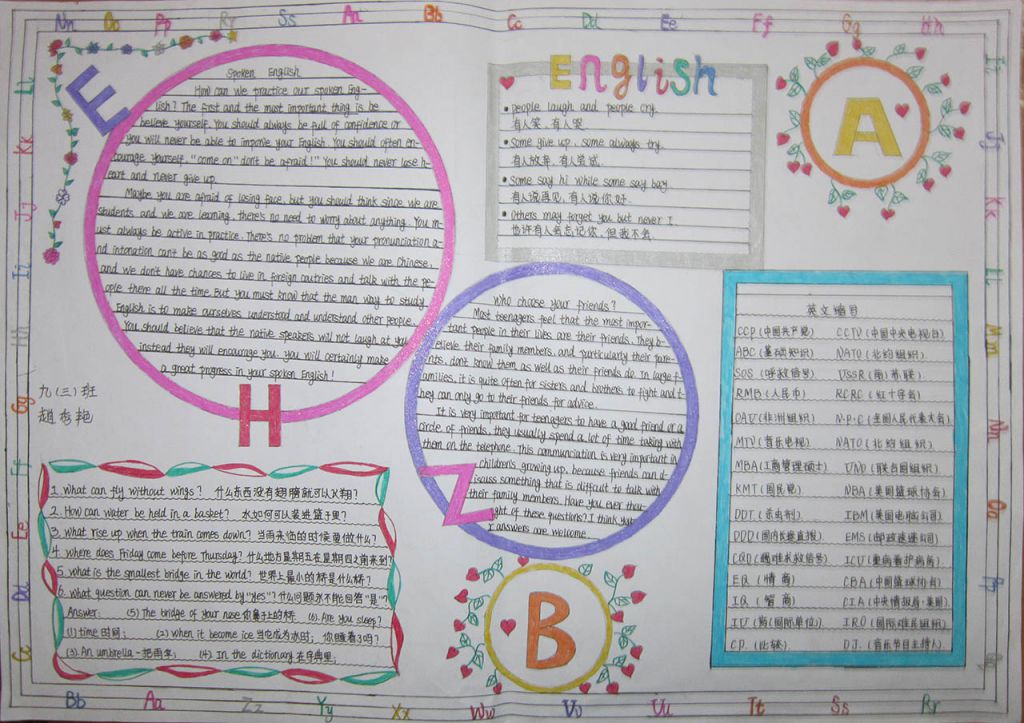 Nn Oo Pp Rr Ss Aa Bb Cc Dd Ee Ff Gg Hh
E
Spoken English
How can we practice our spoken Eng-
lish? The first and the most important thing is be
believe yourself. You should always be full of confidence or
you will never be able to improve your English. You should often en-
courage yourself. "come on" don't be afraid!" You should never lose h-
eart and never give up.
Maybe you are afraid of losing face, but you should think since we are
students and we are learning, there's no need to worry about anything. You m-
ust always be active in practice. There's no problem that your pronunciation a-
nd intonation can't be as good as the native people because we are Chinese,
and we don't have chances to live in foreign coutries and talk with the pe-
ople there all the time. But you must know that the man way to study
English is to make ourselves understood and understand other people.
You should believe that the native speakers will not laugh at you
instead they will encourage you. you will certainly make
a great progress in your spoken English!
H
English
people laugh and people cry.
有人笑、有人哭
Some give up. some always try.
有人放弃、有人尝试
Some say hi while some say bay.
有人说再见,有人说你好.
Others may forget you but never I.
也许有人会忘记你,但我不会.
A
who choose your friends?
Most teenagers feel that the most impor-
tant people in their lives are their friends. They b-
elieve their family members. and particularly their pare-
nts. don't know them as well as their friends do. In large f-
amilies, it is quite often for sisters and brothers to fight and t-
hey can only go to their friends for advice.
It is very important for teenagers to have a good friend or a
circle of friends. they usually spend a lot of time talking with
them on the telephone. This communciation is very important in
children's growing up. because friends can d-
iscuss something that is difficult to talk with
their family members. Have you ever thou-
ght of these questions? I think you
r answers are welcome.
Z
英文缩写
CCP (中国共产党) CCTV (中国中央电视台)
ABC (基础知识) NATO (北约组织)
SOS (呼救信号) USSR (前苏联)
RMB (人民币) RCRC (红十字会)
OAU (非洲组织) N.P.C (全国人民代表大会)
MTV (音乐电视) NATO (北约组织)
MBA (工商管理硕士) UNO (联合国组织)
KMT (国民党) NBA (美国篮球协会)
DDT (杀虫剂) IBM (美国电脑公司)
DDD (国内长途直拨) EMS (邮政速递公司)
CQD (遇难求救信号) ICU (重病看护病房)
EQ (情商) CBA (中国篮球协会)
IQ (智商) CIA (中央情报局·美国)
IU (国际单位) IRO (国际难民组织)
CP. (比较) DJ. (音乐节目主持人)
九(三)班
赵秀艳
1. what can fly without wings? 什么东西没有翅膀就可以飞翔?
2. How can water be held in a basket? 水如何可以装进篮子里?
3. what rise up when the train comes down? 当雨来临的时候是什么?
4. where does Friday come before Thursday? 什么地方星期五在星期四之前来到?
5. what is the smallest bridge in the world? 世界上最小的桥是什么桥?
6. what question can never be answered by "yes"? 什么问题永不能回答"是"?
Answer: (5) The bridge of your nose 你鼻子上的桥 (6). Are you sleep?
(1) time 时间; (2) when it become ice 当它成为冰时; 你睡着了吗?
(3). An umbrella - 把雨伞; (4) In the dictionary 在字典里;
B
Ll Kk Jj Ii Hh Gg Ff Ee Dd Cc
Ii Jj Kk Ll Mm Nn Oo Pp Qq
Bb Aa Zz Yy Xx Ww Vv Uu Tt Ss Rr